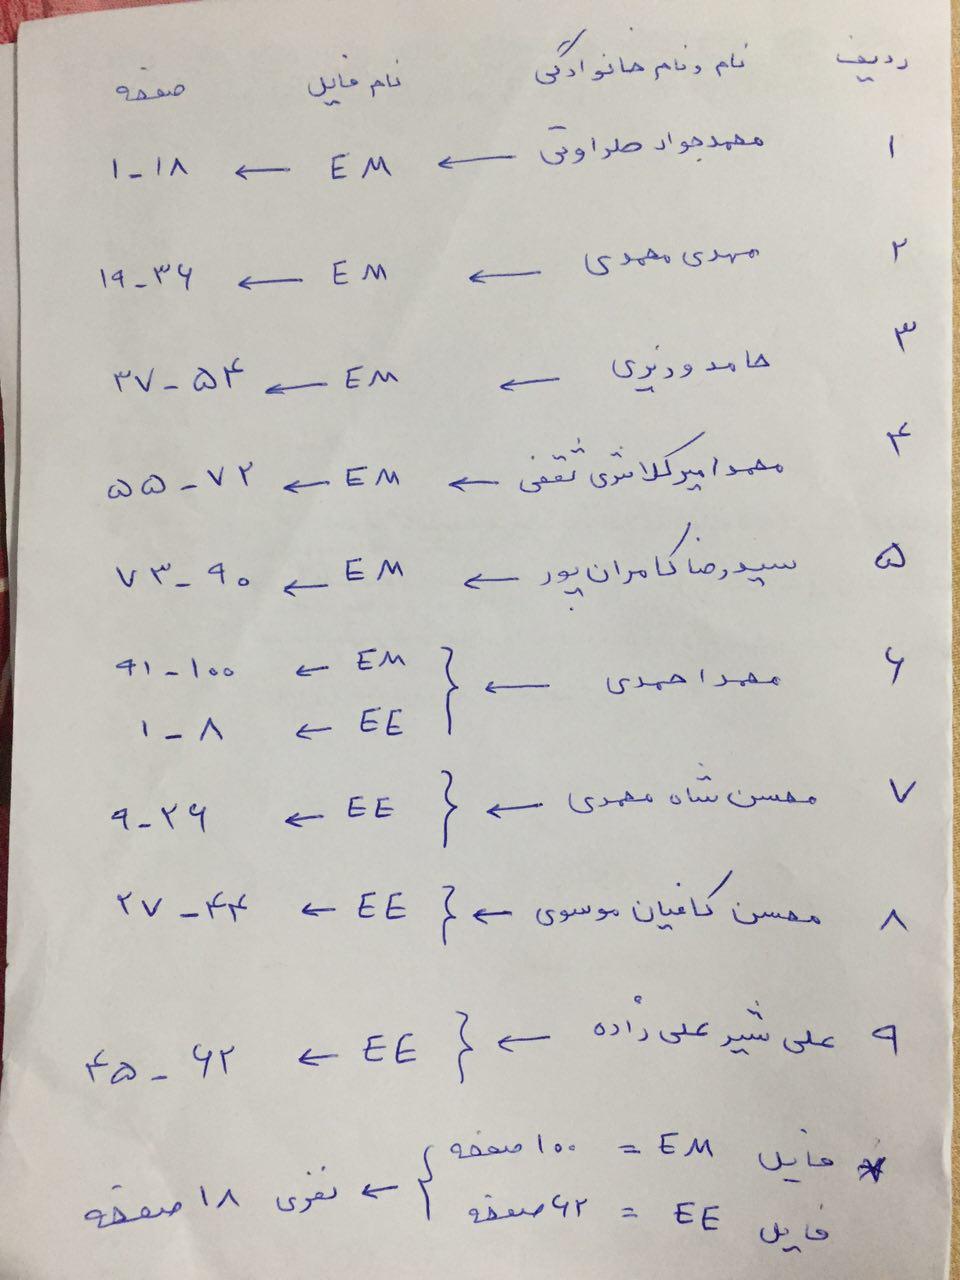 ردیف نام و نام خانوادگی نام فایل صفحه
۱ محمدجواد طراوتی ← EM ← ۱-۱۸
۲ مهدی محمدی ← EM ← ۱۹-۳۶
۳ حامد وزیری ← EM ← ۳۷-۵۴
۴ محمد امیر کلانتری ثقفی ← EM ← ۵۵-۷۲
۵ سیدرضا کامران پور ← EM ← ۷۳-۹۰
۶ محمد احمدی ← { EM ← ۹۱-۱۰۰
EE ← ۱-۸
۷ محسن شاه محمدی ← { EE ← ۹-۲۶
۸ محسن کافیان موسوی ← { EE ← ۲۷-۴۴
۹ علی شیر علی زاده ← { EE ← ۴۵-۶۲
* فایل EM = ۱۰۰ صفحه { ← نفری ۱۸ صفحه
فایل EE = ۶۲ صفحه